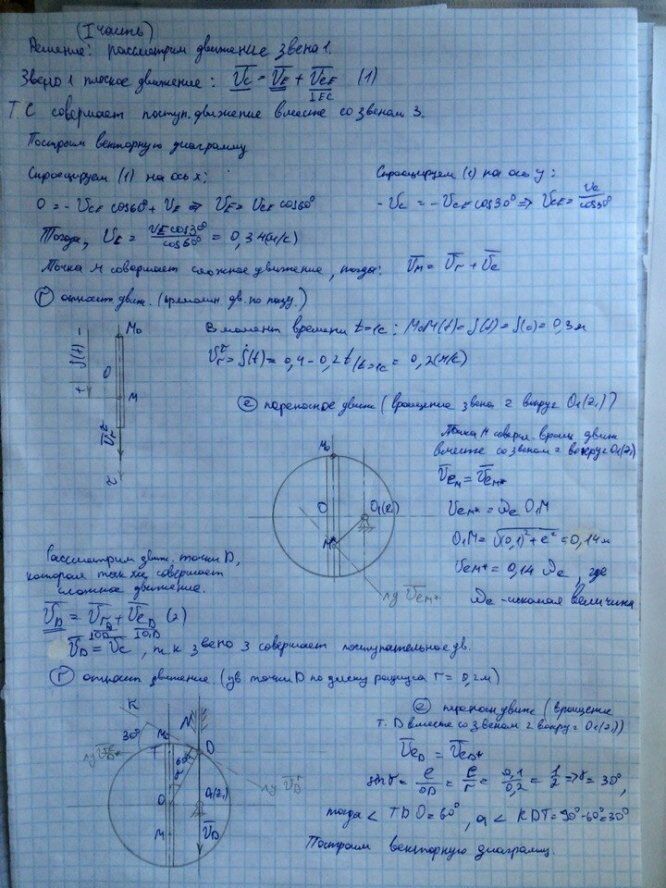 (I часть)
Решение: рассмотрим движение звена 1.
Звено 1 плоское движение: V̄c = V̄E + V̄CE (1)
⊥EC
Т. С совершает поступ. движение вместе со звеном 3.
Построим векторную диаграмму
Спроецируем (1) на ось x:
0 = -VCE cos60° + VE ⇒ VE = VCE cos60°
Спроецируем (1) на ось y:
-Vc = -VCE cos30° ⇒ VCE = Vc/cos30°
Тогда, Vc = VE cos30°/cos60° = 0,34(м/с)
Точка М совершает сложное движение, тогда: V̄м = V̄r + V̄e
(r) относит движ. (прямолин дв. по пазу.)
В момент времени t=1c: M₀M(t) = S(t) = S(0) = 0,3м
Vr^τ = Ṡ(t) = 0,4 - 0,2t/t=1c = 0,2(м/с)
M₀
O
M
S(t)
+
-
V̄r^τ
τ
(e) переносное движ (вращение звена 2 вокруг O₁(z₁))
Точка М соверш. вращ. движ
вместе со звеном 2 вокруг O₁(z₁)
V̄eм = V̄eм*
Veм* = ωe O₁M
O₁M = √(0,1)² + e² = 0,14м
Veм* = 0,14 ωe, где
ωe - искомая величина
M₀
O
O₁(z₁)
M*
лу V̄eм*
Рассмотрим движ. точки D,
которая так же совершает
сложное движение.
V̄D = V̄rD + V̄eD (2)
⊥OD ⊥O₁D
V̄D = V̄c, т.к звено 3 совершает поступательное дв.
(r) относит движение. (дв точки D по диску радиуса r = 0,2м)
(e) переносн движ (вращение
т. D вместе со звеном 2 вокруг O₁(z₁))
V̄eD = V̄eD*
sinγ = e/OD = e/r = 0,1/0,2 = 1/2 ⇒ γ = 30°,
тогда < TDO = 60°, а < KDT = 90°-60° = 30°
Построим векторную диаграмму.
K
N
30°
M₀
T
D
60°
γ
O
O₁(z₁)
M
V̄D